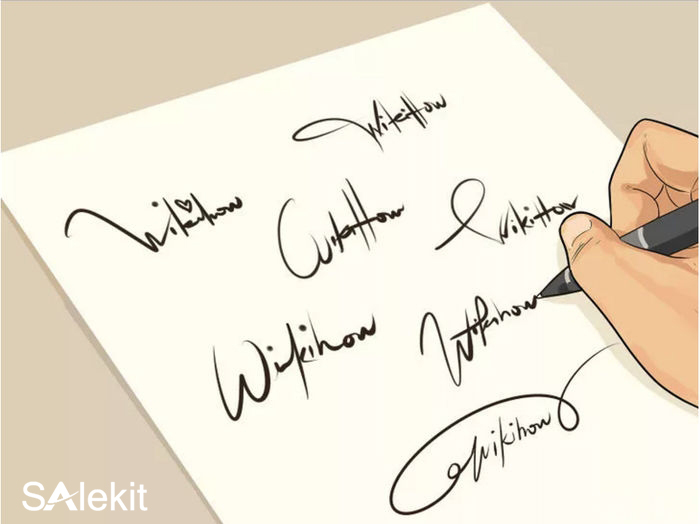 WikiHow
Wikihow
WikiHow
WikiHow
Wikihow
Wikihow
Wikihow
SAlekit